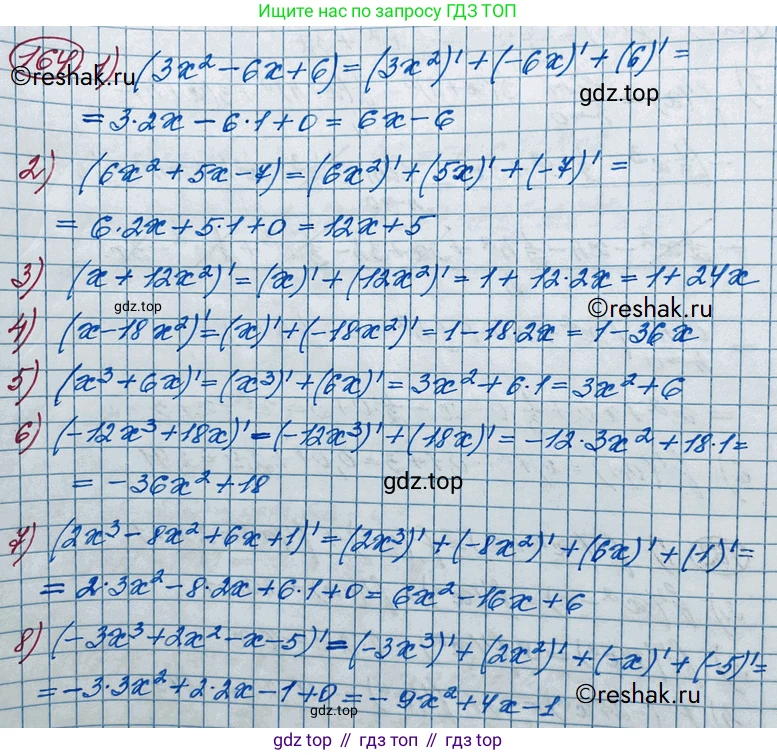 Ищите нас по запросу ГДЗ ТОП
164 1) (3x² - 6x + 6) = (3x²)' + (-6x)' + (6)' =
©reshak.ru
gdz.top
= 3·2x - 6·1 + 0 = 6x - 6
2) (6x² + 5x - 7) = (6x²)' + (5x)' + (-7)' =
= 6·2x + 5·1 + 0 = 12x + 5
3) (x + 12x²)' = (x)' + (12x²)' = 1 + 12·2x = 1 + 24x
gdz.top
©reshak.ru
4) (x - 18x²)' = (x)' + (-18x²)' = 1 - 18·2x = 1 - 36x
5) (x³ + 6x)' = (x³)' + (6x)' = 3x² + 6·1 = 3x² + 6
6) (-12x³ + 18x)' = (-12x³)' + (18x)' = -12·3x² + 18·1 =
= -36x² + 18
gdz.top
7) (2x³ - 8x² + 6x + 1)' = (2x³)' + (-8x²)' + (6x)' + (-1)' =
= 2·3x² - 8·2x + 6·1 + 0 = 6x² - 16x + 6
8) (-3x³ + 2x² - x - 5)' = (-3x³)' + (2x²)' + (-x)' + (-5)' =
= -3·3x² + 2·2x - 1 + 0 = -9x² + 4x - 1
©reshak.ru
gdz.top
gdz.top // гдз.топ // gdz.top